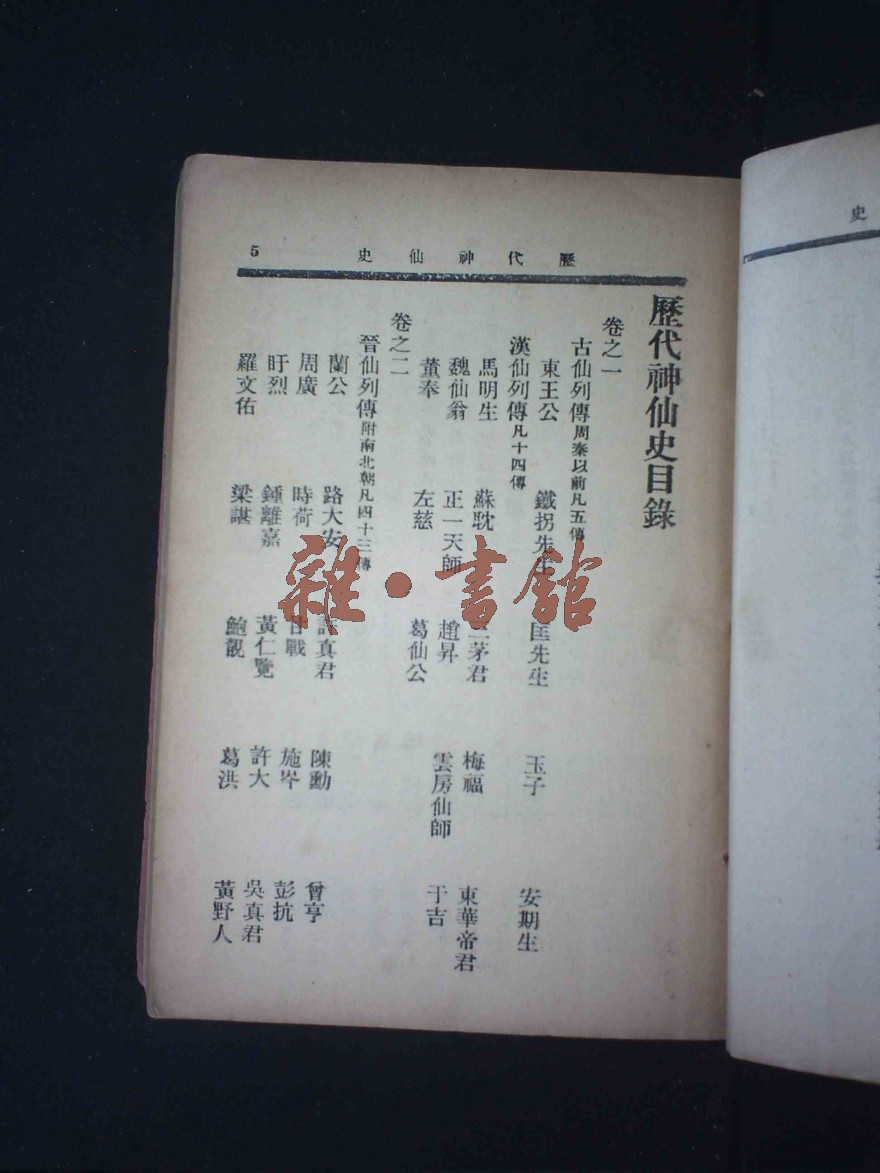 歷代神仙史
5
歷代神仙史目錄
卷之一
古仙列傳周秦以前凡五傳
東王公 鐵拐先生 匡先生 玉子 安期生
漢仙列傳凡十四傳
馬明生 蘇耽 三茅君 梅福 東華帝君
魏仙翁 正一天師 趙昇 雲房仙師 于吉
董奉 左慈 葛仙公
卷之二
晉仙列傳附南北朝凡四十三傳
蘭公 路大安 許真君 陳勳 曾亨
周廣 時荷 甘戰 施岑 彭抗
盱烈 鍾離嘉 黃仁覽 許大 吳真君
羅文佑 梁諶 鮑靚 葛洪 黃野人
史
雜·書館